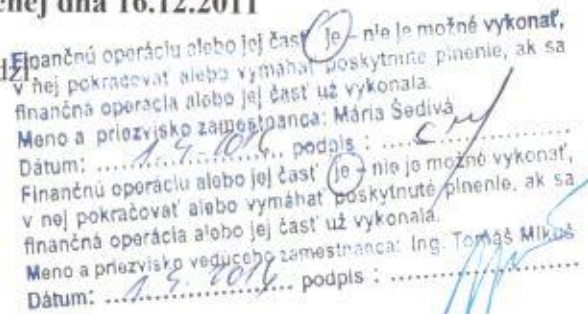 enej dňa 16.12.2011
dzi
Finančnú operáciu alebo jej časť je - nie je možné vykonať,
v nej pokračovať alebo vymáhať poskytnuté plnenie, ak sa
finančná operácia alebo jej časť už vykonala.
Meno a priezvisko zamestnanca: Mária Šedivá
Dátum: ............ podpis : ............
Finančnú operáciu alebo jej časť je - nie je možné vykonať,
v nej pokračovať alebo vymáhať poskytnuté plnenie, ak sa
finančná operácia alebo jej časť už vykonala.
Meno a priezvisko vedúceho zamestnanca: Ing. Tomáš Mikuš
Dátum: ............ podpis : ............